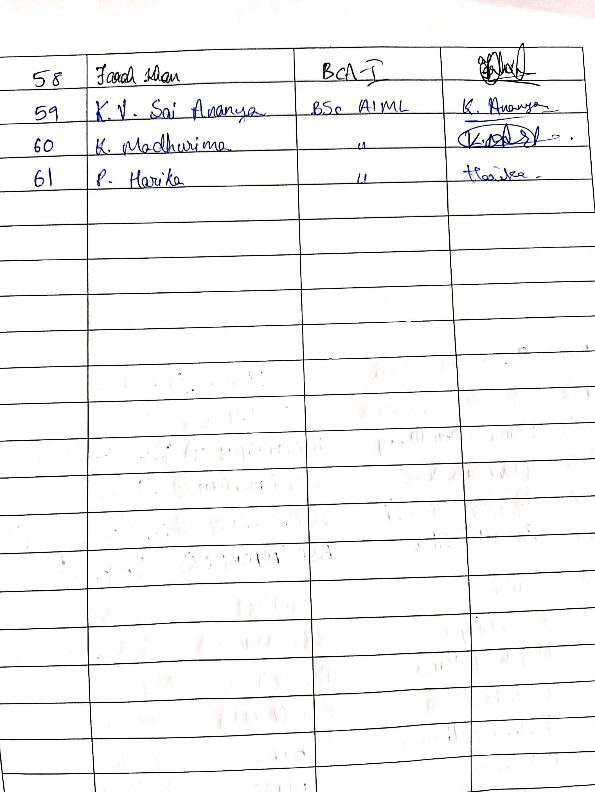 58 Farah Khan BCA-I
59 K. V. Sai Ananya BSc AIML K. Ananya
60 K. Madhurima "
61 P. Harika " Harika